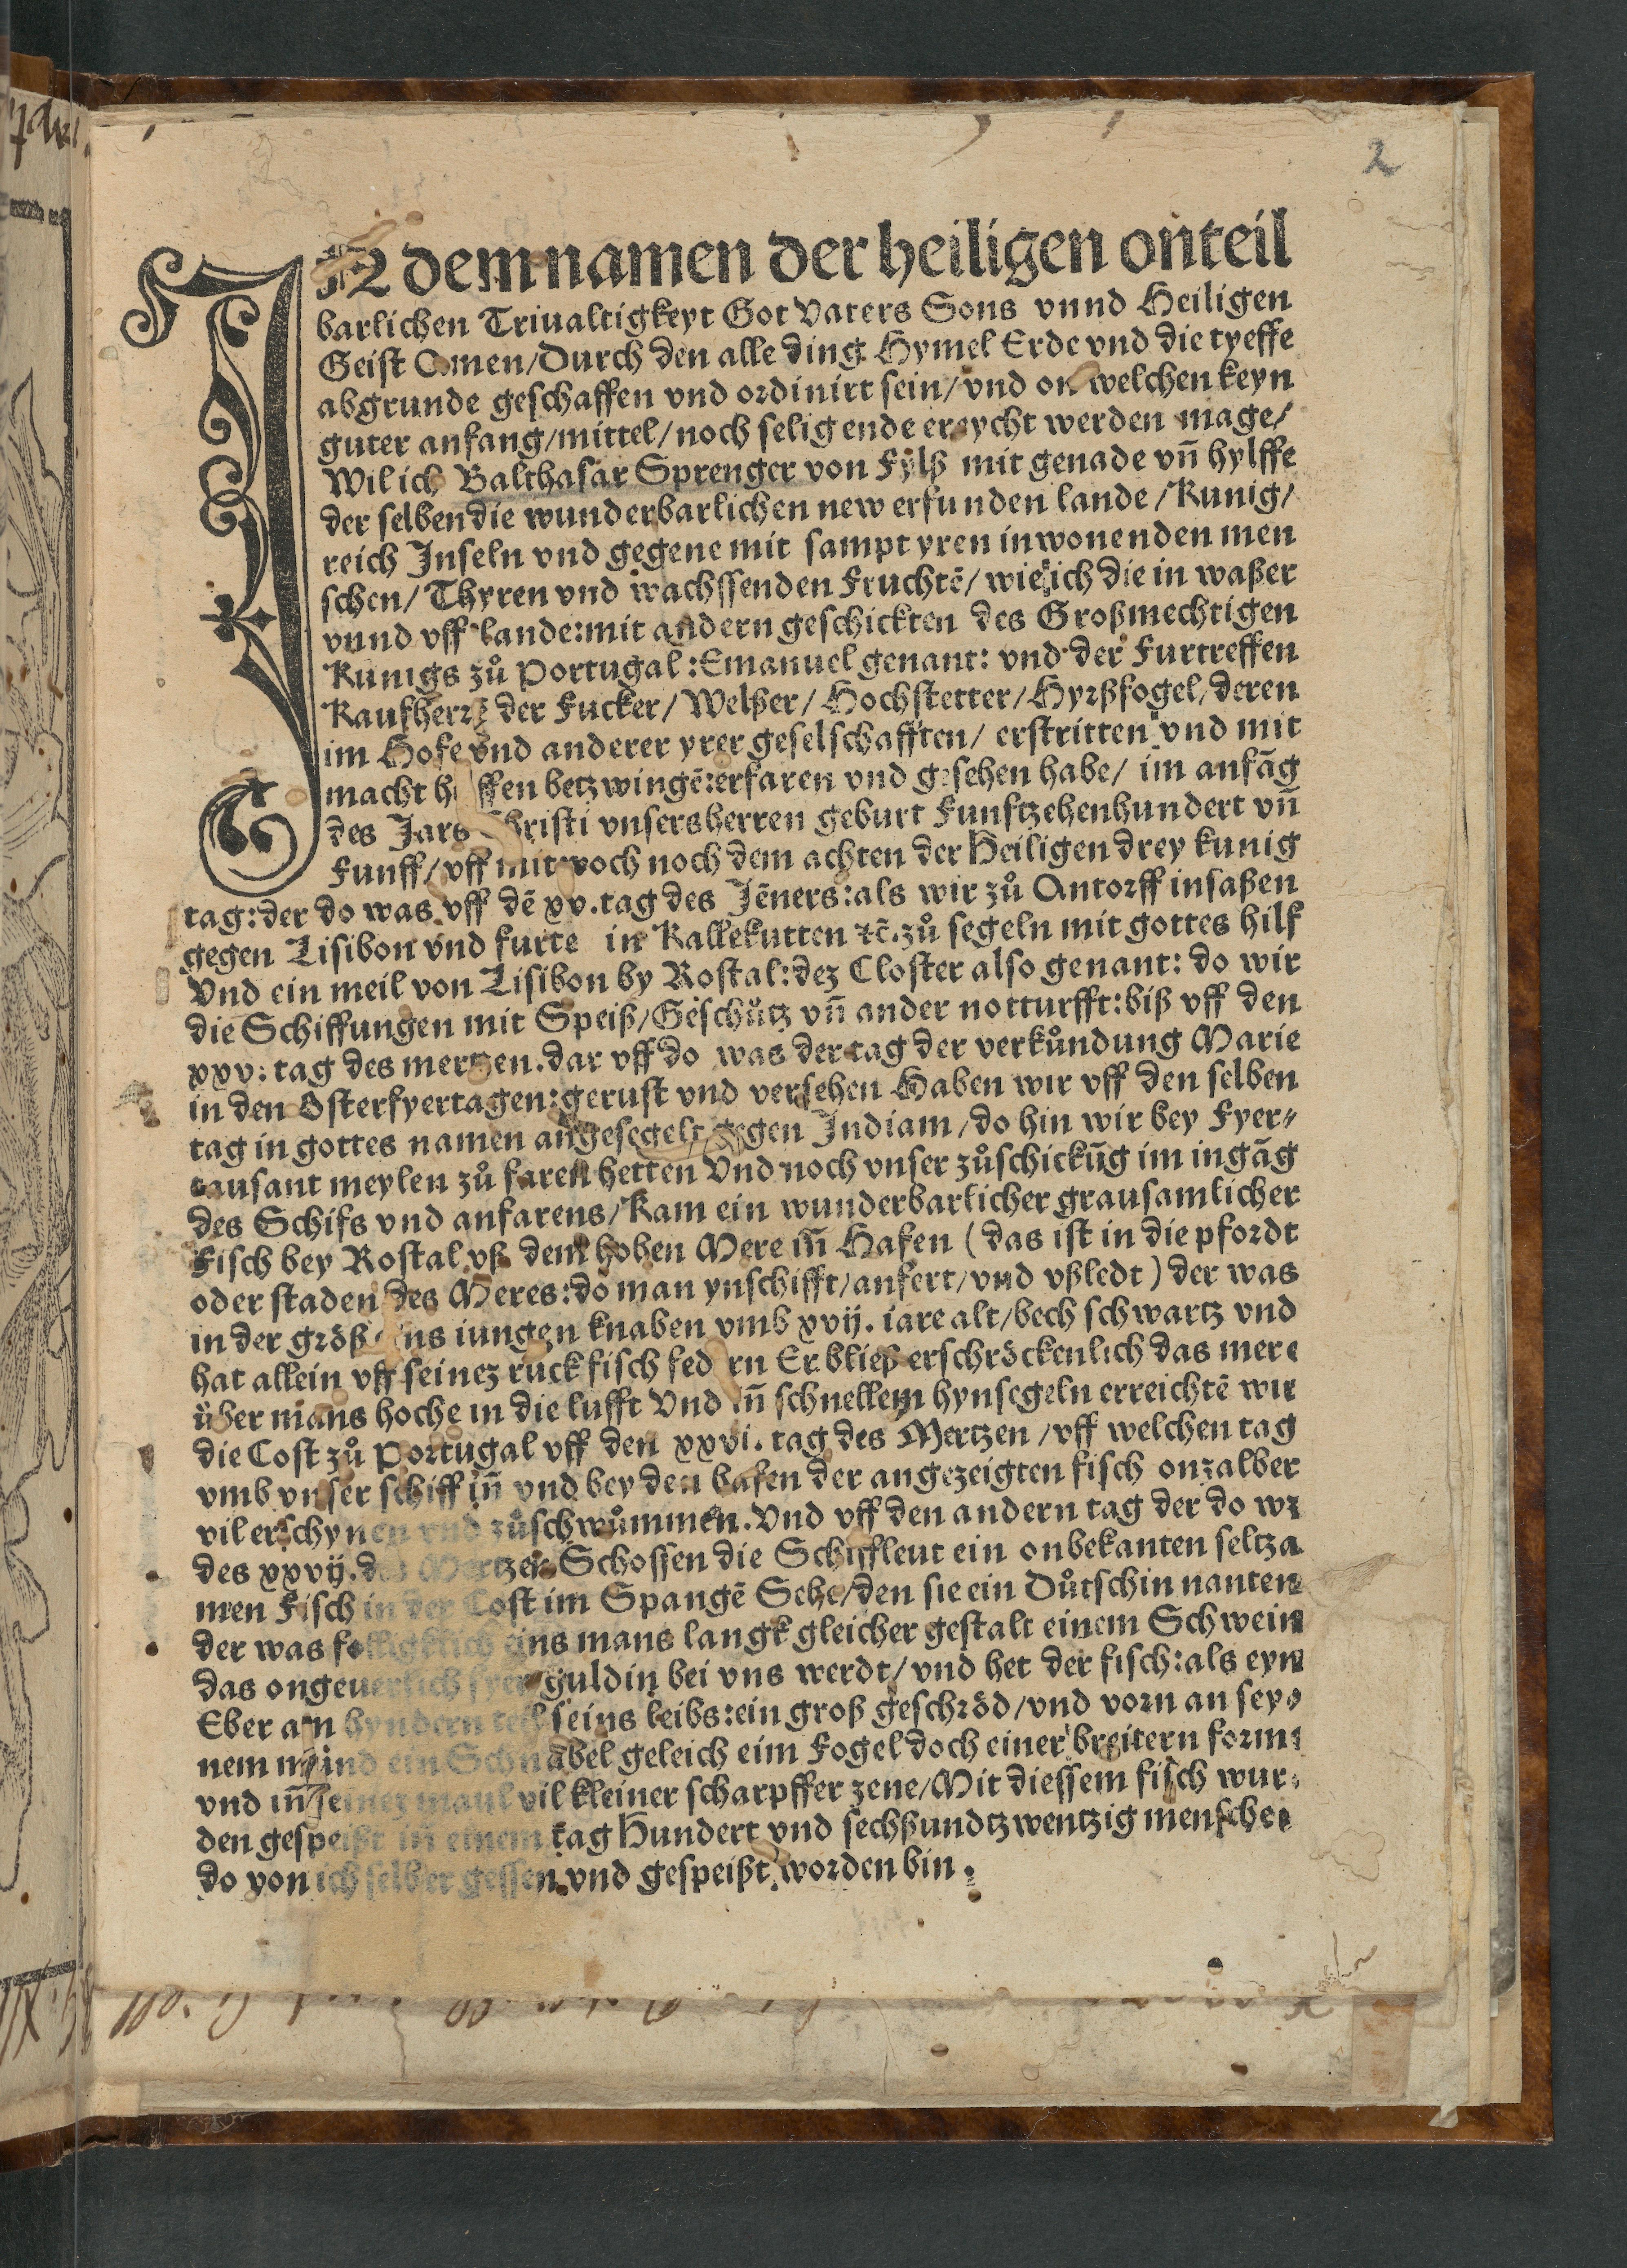 2
IN dem namen der heiligen onteil
barlichen Triualtigkeyt Got Vaters Sons vnnd Heiligen
Geist Amen/Durch den alle ding Hymel Erde vnd die tyeffe
abgrunde geschaffen vnd ordinirt sein/vnd on welchen keyn
guter anfang/mittel/noch selig ende ereycht werden mage/
Wil ich Balthasar Sprenger von Fylß mit genade vn̄ hylffe
der selben die wunderbarlichen new erfunden lande/Kunig/
reich Inseln vnd gegene mit sampt yren inwonenden men
schen/Thyren vnd wachssenden Fruchtē/wie ich die in waßer
vnnd vff lande:mit andern geschickten des Großmechtigen
Kunigs zů Portugal:Emanuel genant: vnd der Furtreffen
Kaufherrē der Fucker/Welßer/Hochstetter/Hyrßfogel/deren
im Hofe vnd anderer yrer geselschafften/ erstritten vnd mit
macht helffen betzwingē:erfaren vnd gesehen habe/ im anfāg
des Jars Christi vnsers herren geburt Funftzehenhundert vn̄
Funff/vff mitwoch noch dem achten der Heiligen drey kunig
tag:der do was vff dē xv.tag des Jēners:als wir zů Antorff insaßen
gegen Lisibon vnd furte in Kallekutten ꝛc̄.zů segeln mit gottes hilf
Vnd ein meil von Lisibon by Rostal:dez Closter also genant: do wir
die Schiffungen mit Speiß/Geschůtz vn̄ ander notturfft:biß vff den
xxv. tag des mertzen.dar vff do was der tag der verkůndung Marie
in den Osterfyertagen:gerust vnd versehen Haben wir vff den selben
tag in gottes namen angesegelt gegen Indiam/do hin wir bey Fyer⸗
tausant meylen zů faren hetten Vnd noch vnser zůschickūg im ingāg
des Schifs vnd anfarens/Kam ein wunderbarlicher grausamlicher
Fisch bey Rostal vß dem hohen Mere in̄ Hafen (das ist in die pfordt
oder staden des Meres:do man ynschifft/anfert/vnd vßledt) der was
in der größ eins iungen knaben vmb xvij. iare alt/bech schwartz vnd
hat allein vff seinez ruck fisch federn Er bließ erschröckenlich das mere
über mans hoche in die lufft Vnd in̄ schnellem hynsegeln erreichtē wir
die Cost zů Portugal vff den xxvi. tag des Mertzen/vff welchen tag
vmb vnser schiff in̄ vnd bey den hafen der angezeigten fisch onzalber
vil erschynen vnd zůschwůmmen.Vnd vff den andern tag der do wz
des xxvij.des Mertzen Schossen die Schiffleut ein onbekanten seltza
men Fisch in der Cost im Spangē Sehe/den sie ein Důtschin nanten
der was folligklich eins mans langk gleicher gestalt einem Schwein
das ongeuerlich fyer guldin bei vns werdt/vnd het der fisch:als eyn
Eber am hyndern teyl seins leibs:ein groß geschröd/vnd vorn an sey⸗
nem mund ein Schnabel geleich eim Fogel doch einer breitern forme
vnd in̄ seinez maul vil kleiner scharpffer zene/Mit diessem fisch wur⸗
den gespeißt in̄ einem tag Hundert vnd sechßundtzwentzig menschen
do von ich selber gessen vnd gespeißt worden bin.